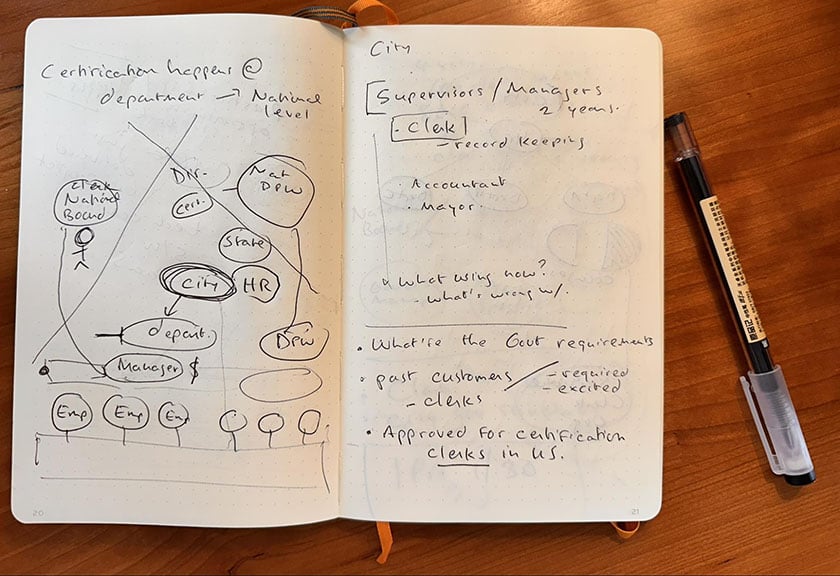 Certirication happens @
department → National
level
Clerk
National
Board
Div.
Cert.
Nat
DPW
State
City
HR
depart.
DPW
Manager $
Emp
Emp
Em
20
City
Supervisors / Managers
2 years.
• Clerk
- record keeping
• Accountant
• Mayor
What using now?
- What's wrong w/.
• What're the Gout requirements
• past customers
- required
- clerks
- excited
• Approved for certification
clerks in US.
21